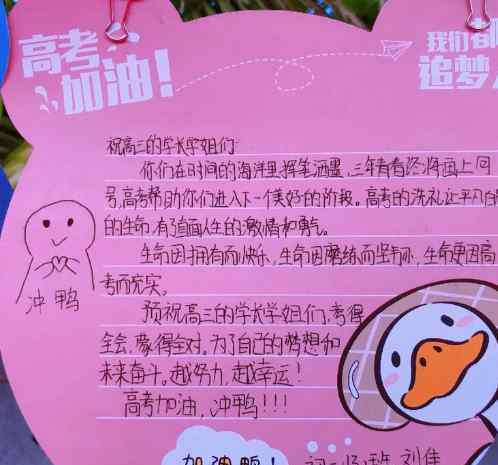 高考
加油!
我们都
追梦人
祝高三的学长学姐们:
你们在时间的海洋里挥笔洒墨,三年青春终将画上问
号,高考帮助你们进入下一个美好的阶段。高考的洗礼让平凡
的生命,有了直面人生的激情和勇气。
生命因拥有而快乐,生命因磨练而坚韧,生命更因高
考而充实。
预祝高三的学长学姐们,考得
全会,蒙得全对。为了自己的梦想和
未来奋斗。越努力,越幸运!
高考加油,冲鸭!!!
冲鸭
加油鸭!